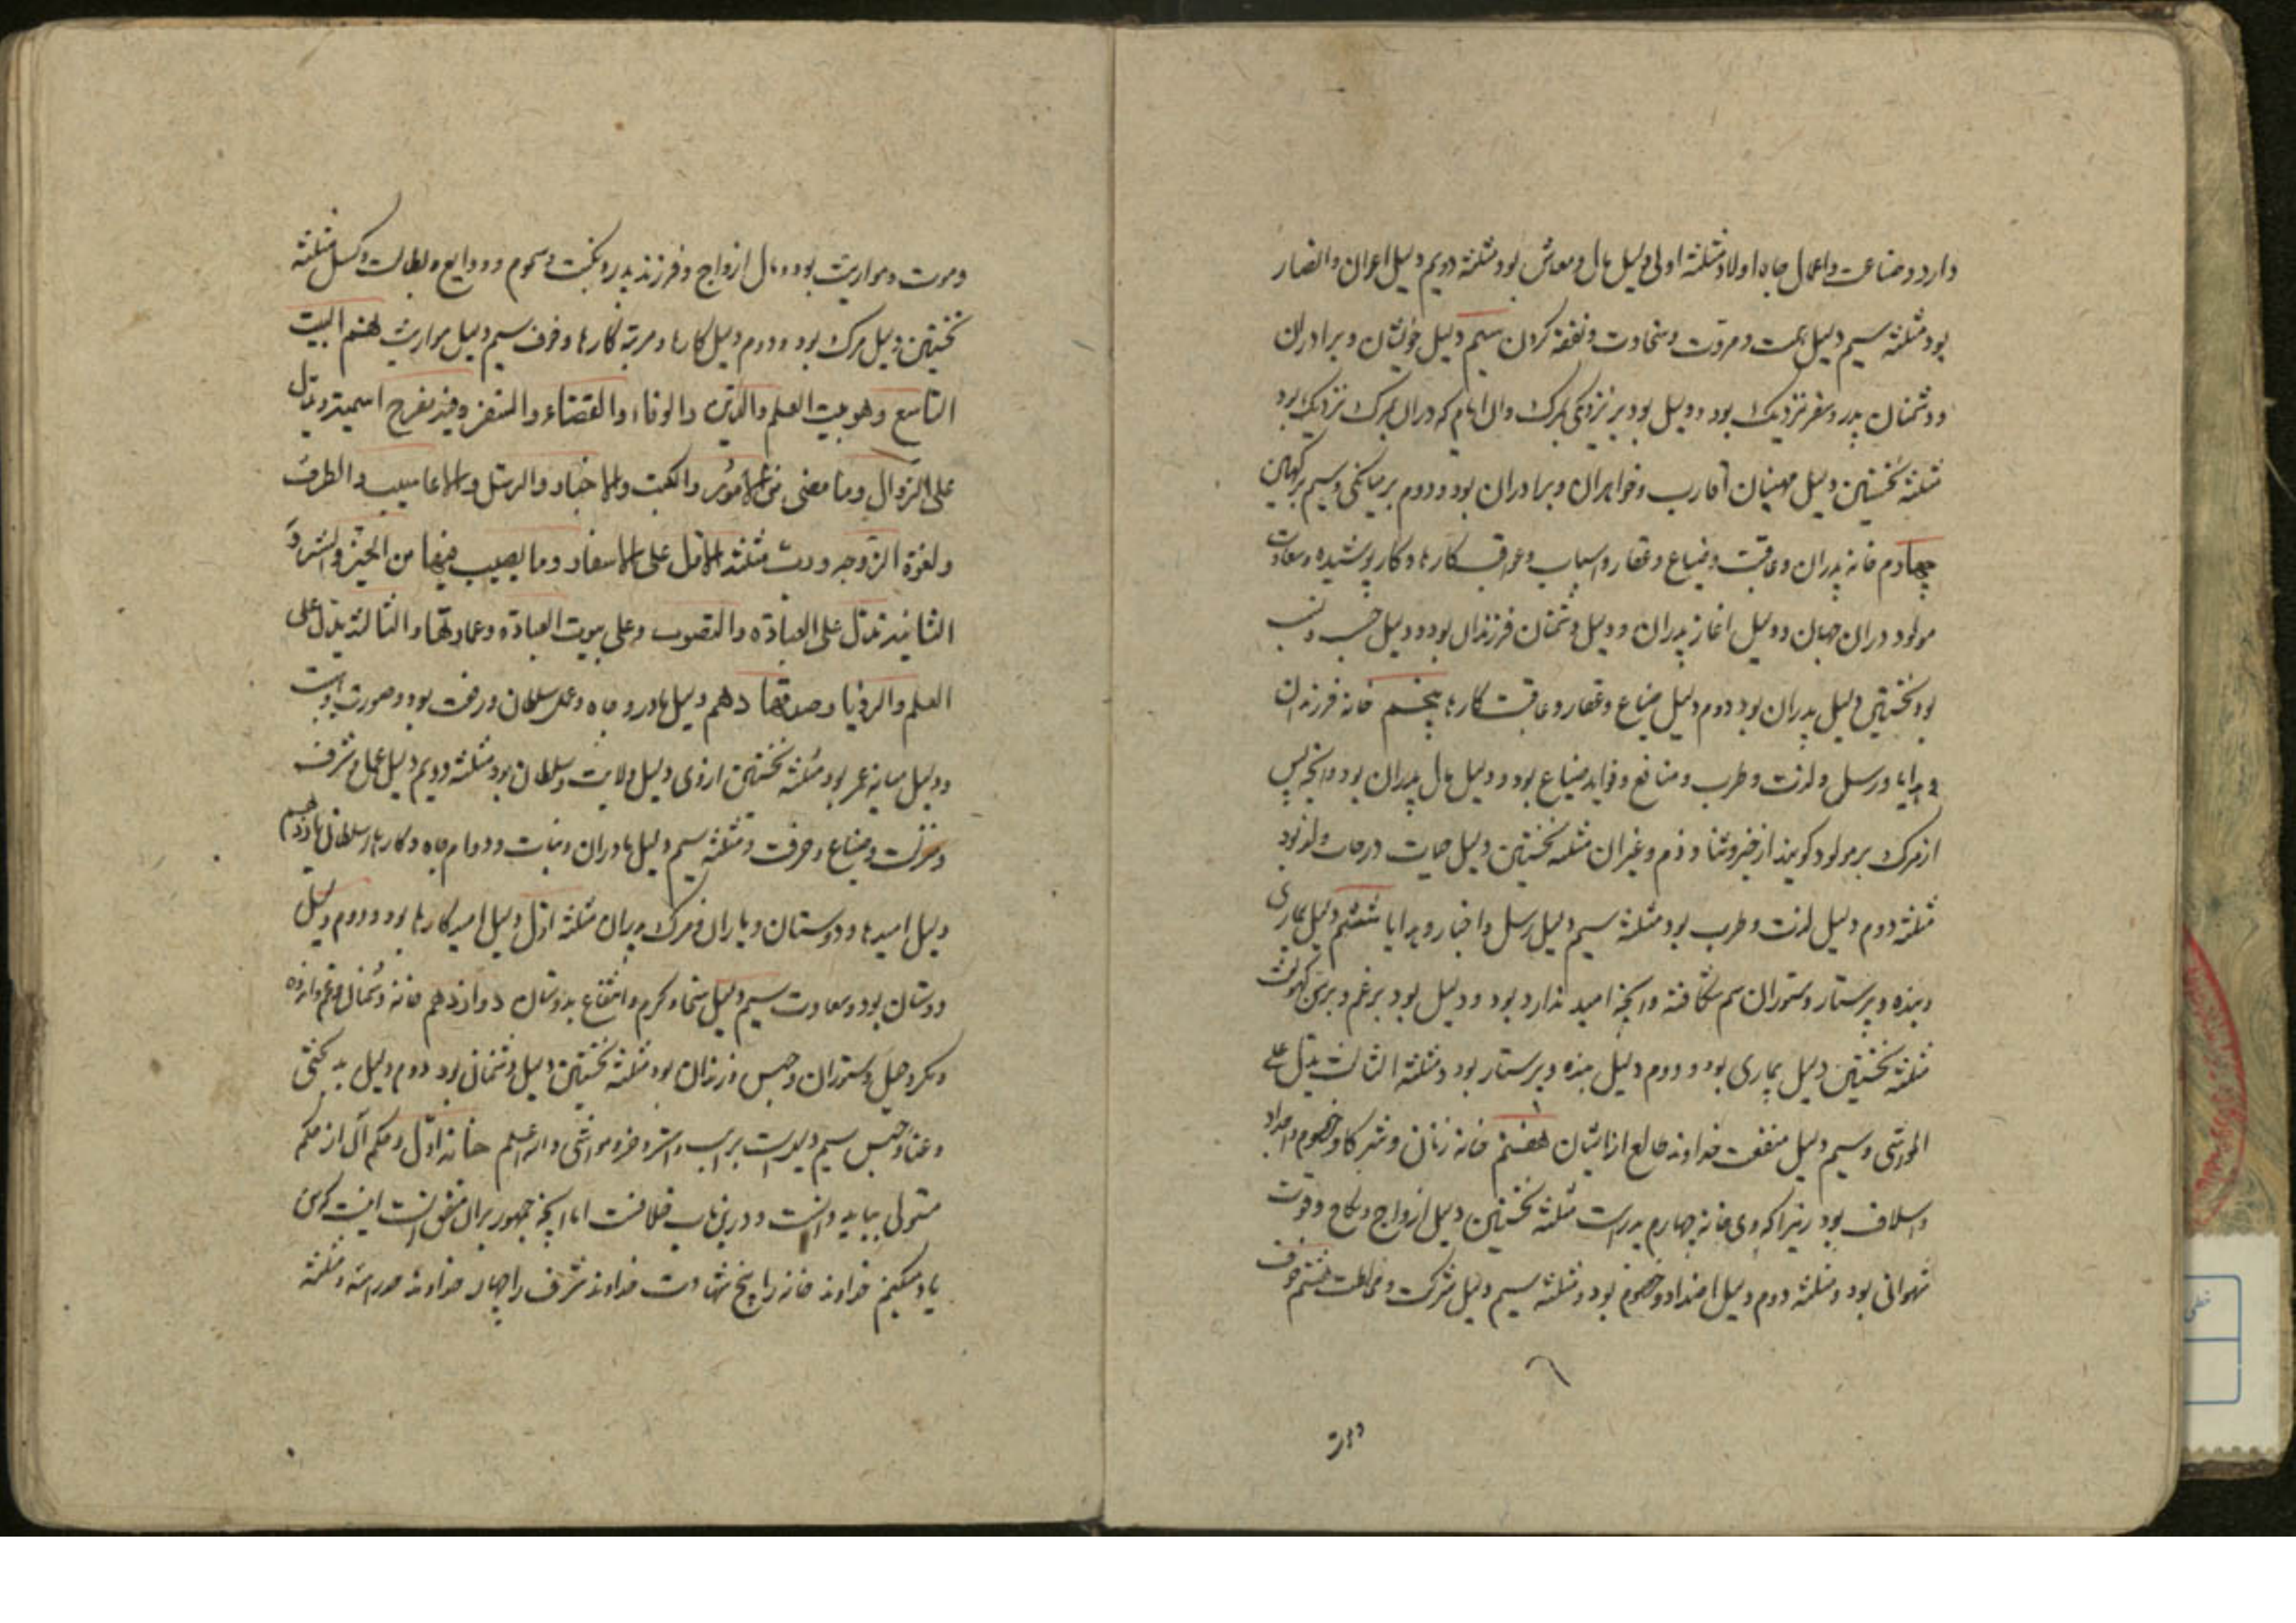 دارد و صناعت و اعمال جاه اولاد مثلثه اولی دلیل مال و معاش بود مثلثه دویم دلیل اعوان و انصار
بود مثلثه سیم دلیل همت و مروت و سخاوت و نفقه کردن سیم دلیل خویشان و برادران
و دشمنان پدر و سفر نزدیک بود و دلیل بود بر نزدیکی مرک و ان ایام که دران مرک نزدیک بود
مثلثه نخستین دلیل مهینان اقارب و خواهران و برادران بود و دوم بر میانکی و سیم بر کهین
چهارم خانه پدران و عاقبت و ضیاع و عقار و اسباب و عواقب کارها و کار پوشیده و سعادت
مولود دران جهان و دلیل اغاز پدران و دلیل دشمنان فرزندان بود و دلیل حسب و نسب
بود نخستین دلیل پدران بود دوم دلیل ضیاع و عقار و عاقبت کارها پنجم خانه فرزندان
و هدایا و رسل و لذت و طرب و منافع و فواید ضیاع بود و دلیل مال پدران بود و انچه پس
از مرک بر مولود کویند از خیر و ثنا و ذم و غیر ان مثلثه نخستین دلیل حیات در حالت ولد بود
مثلثه دوم دلیل لذت و طرب بود مثلثه سیم دلیل رسل و اخبار و هدایا ششم دلیل بیماری
و بنده و پرستار و ستوران سم شکافته و انچه امید ندارد بود و دلیل بود بر غم و برس کهولت
مثلثه نخستین دلیل بیماری بود و دوم دلیل بنده و پرستار بود و مثلثه الثالث یدل علی
المواشی و سیم دلیل منفعت خداوند طالع از ایشان هفتم خانه زنان و شرکا و خصوم و اجداد
و اسلاف بود زیرا که وی خانه چهارم پدر است مثلثه نخستین دلیل ازواج و نکاح و قوت
شهوانی بود و مثلثه دوم دلیل اضداد و خصوم بود و مثلثه سیم دلیل شرکت و مخالطت هشتم خوف
و موت و مواریث بود و مال ازواج و فرزند پدر و نکبت و سموم و ودایع و بطالت و کسل مثلثه
نخستین دلیل مرک بود و دوم دلیل کارها و مرتبه کارها و خوف سیم دلیل مواریث نهم البیت
التاسع وهو بیت العلم والدین والوفاء والقضاء والسفر وفیه تفرح الشمس ویدل
علی الزوال وما مضی من الامور والکتب والاخبار والرسل والاعاجیب والطرف
ولغزة الزوجه وربّ مثلثه الاول علی الاسفار وما یصیب فیها من الخیر والشر و
الثانیه تدل علی العبادة والتصوب وعلی بیوت العبادة وعمارتها والثالثه یدل علی
العلم والرؤیا وصدقها دهم دلیل مادر و جاه و عمل سلطان و رفعت بود و صورت
و دلیل میانه عمر بود مثلثه نخستین از وی دلیل ولایت و سلطان بود مثلثه دویم دلیل عمل و شرف
و منزلت و صناع و حرفت و مثلثه سیم دلیل مادران و ثبات و دوام جاه و کارها سلطانی یازدهم
دلیل امیدها و دوستان و یاران و مرک پدران مثلثه اول دلیل امید کارها بود و دوم دلیل
دوستان بود و سعادت سیم دلیل سخا و کرم و انتفاع بدوستان دوازدهم خانه دشمنان و غم و اندوه
و مکر و حیل و ستوران و حبس فرزندان بود مثلثه نخستین دلیل دشمنان بود دوم دلیل بدبختی
و عنا و حبس سیم دلیلست بر اسب و اشتر و خر و مواشی والله اعلم خانه اول و حکم آن از حکم
متولی بباید دانست و درین باب خلافست اما انچه جمهور بران متفق است اینست که می
یاد میکنیم خداوند خانه را پنج شهادت خداوند شرف را چهار خداوند حد را سه و مثلثه